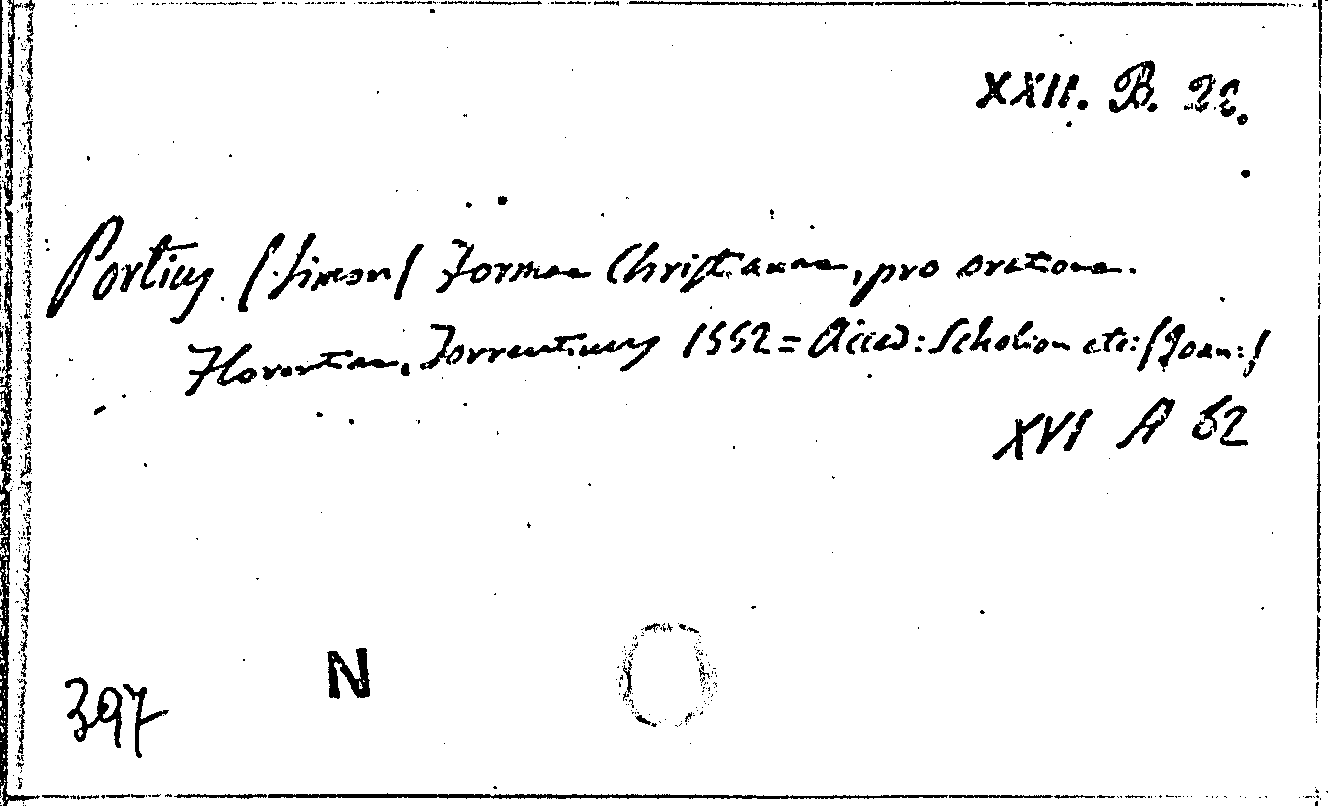 XXII. B. 22.
Portius /:Simon/ Formae Christianae, pro oratione.
Florentiae, Torrentinus 1552 = Acced: Scholion etc: /Joan:/
XVI A 62
N
397